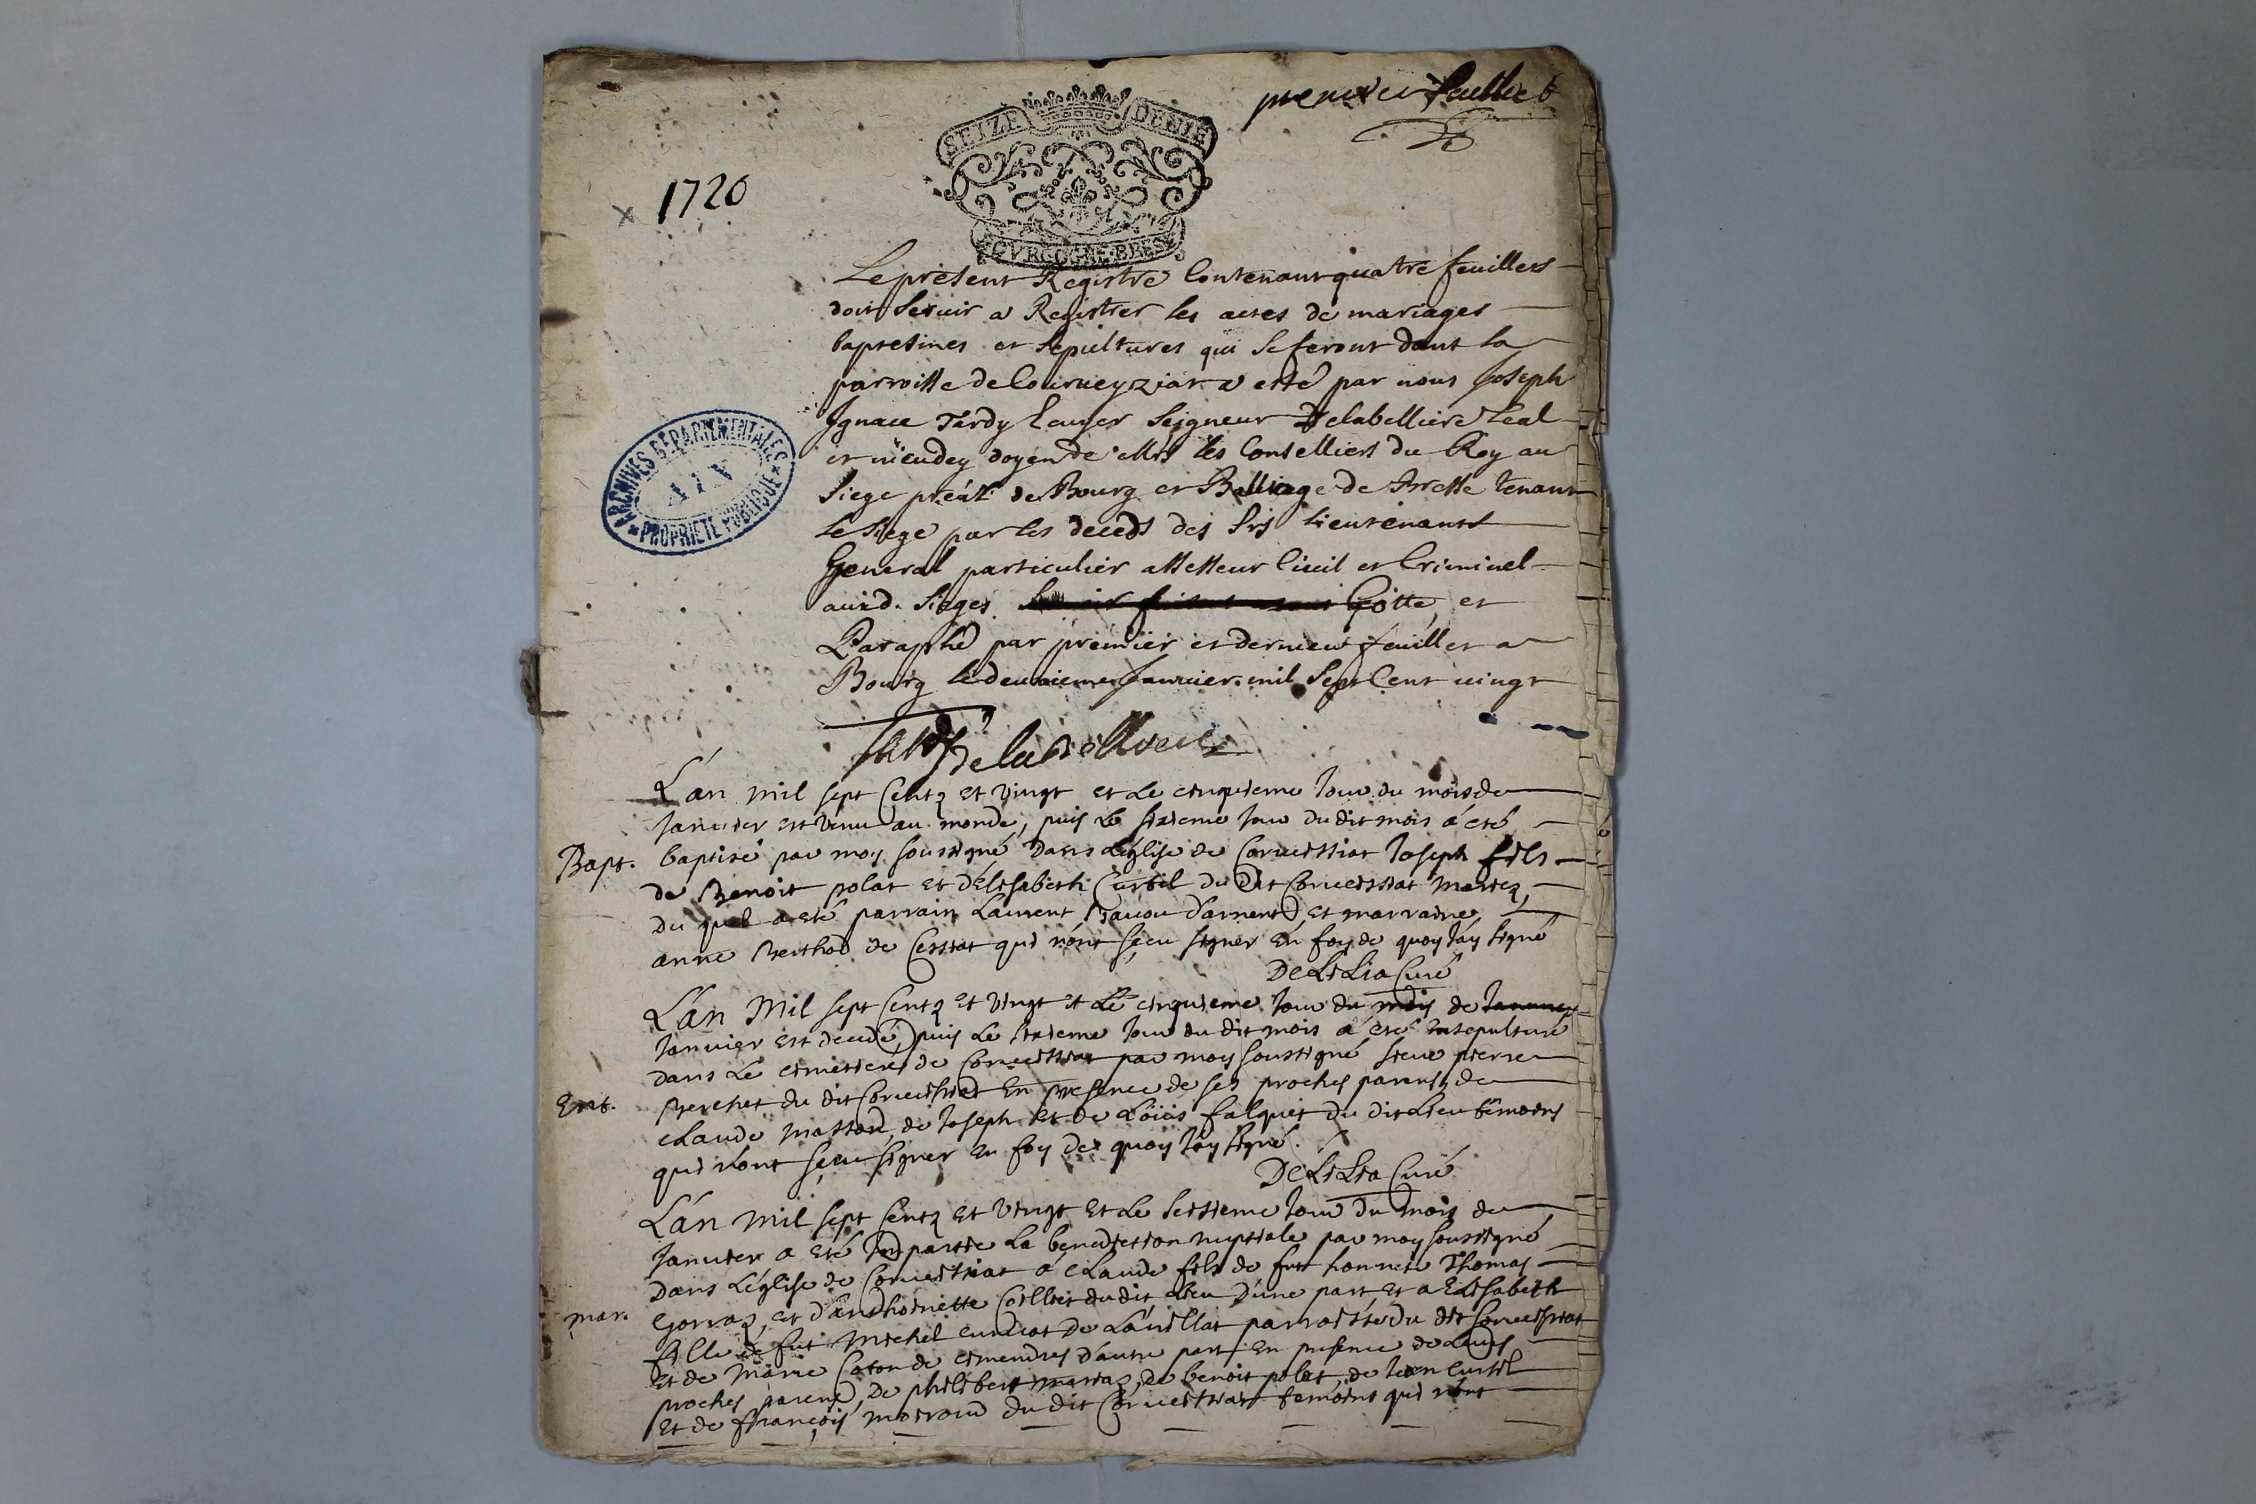 premier feuillet
SEIZE DENIE
BOVRGOGNE BRESS
1720
Le present Registre Contenant quatre feuillets
doit servir a Registrer les actes de mariages
baptesmes et sepultures qui se feront dans la
parroisse de Courveyziat a esté par nous Joseph
Ignace Tardy Seigneur Delabelliere Leal
et doyen de Mrs les Conselliers du Roy au
Siege de Bourg et Balliage de Bresse tenant
le Siege par les deceds des Srs Lieutenants
General particulier assesseur Civil et Criminel
auxd. Sieges Cotte, et
Paraphé par premier et dernier feuillet a
Bourg le deuxieme Janvier mil Sept Cent vingt
ARCHIVES DÉPARTEMENTALES
AIN
PROPRIÉTÉ PUBLIQUE
Tardy Delabelliere
L'an mil sept Centz et vingt et Le cinquieme Jour du mois de
Janvier est venu au monde, puis Le sixieme Jour dudit mois á eté
Bapt. baptisé par moy soussigné dans L'église de Corveissiat Joseph fils
de Benoit polat et d'Elisabeth Curtil du dit Corveissiat mariez,
du quel a eté parrain Laurent d'arnent et marraine
anne Berthod de Cessiat qui n'ont sçeu signer En foy de quoy J'ay signé
DeLiLia Curé
L'an Mil sept Centz et vingt et Le cinquieme Jour du mois de Janvier
Janvier est decedé, puis Le sixieme Jour du dit mois á eté Ensepulturé
dans Le cimetiere de Corveissiat par moy soussigné sieur pierre
Ent. Berchet du dit Corveissiat En presence de ses proches parents de
claude masson, de Joseph et de Loüis falquet du dit Lieu témoins
qui n'ont sçeu signer En foy de quoy J'ay signé.
DeLiLia Curé
L'an mil sept Centz et vingt et Le seisieme Jour du mois de
Janvier a eté Impartie La benediction nuptiale par moy soussigné
dans L'église de Corveissiat á claude fils de fut honnete Thomas
mar. Gorraz, et d'anthoinette Coillet dudit Lieu d'une part, et a Elisabeth
fille de fut Michel curdiat de L'avillat parroisse du dit Corveissiat
et de Marie Coton de cimendres d'autre part En presence de Leurs
proches parens, de philibert mariaz, de benoit polat, de Jean Curtil
et de françois moiroud du dit Corveissiat temoins qui n'ont